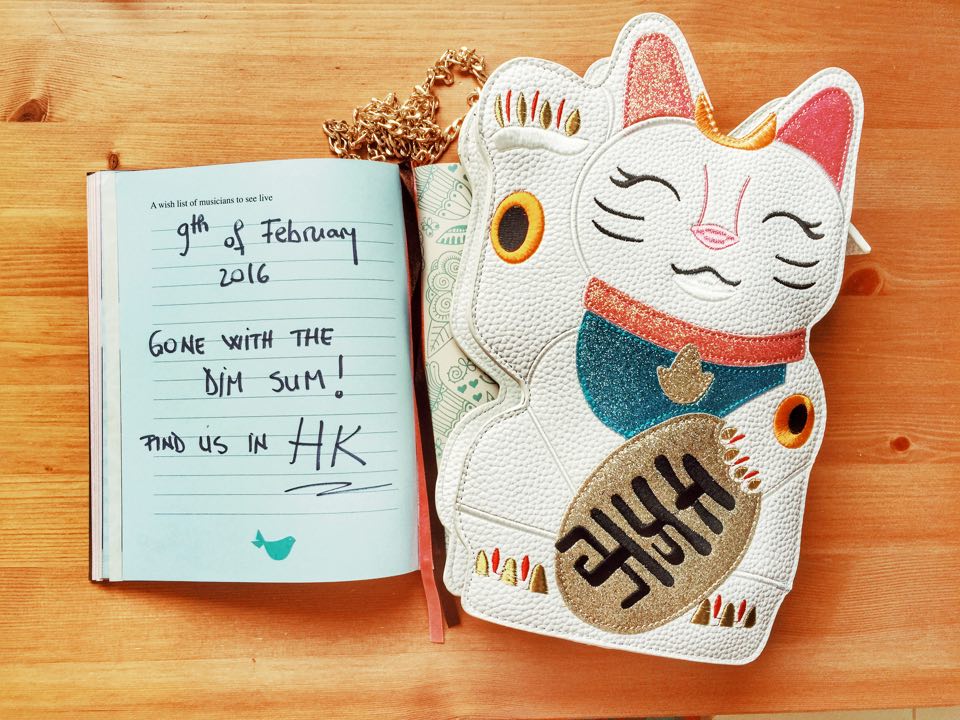 A wish list of musicians to see live
9th of February
2016
GONE WITH THE
DIM SUM!
FIND US IN HK